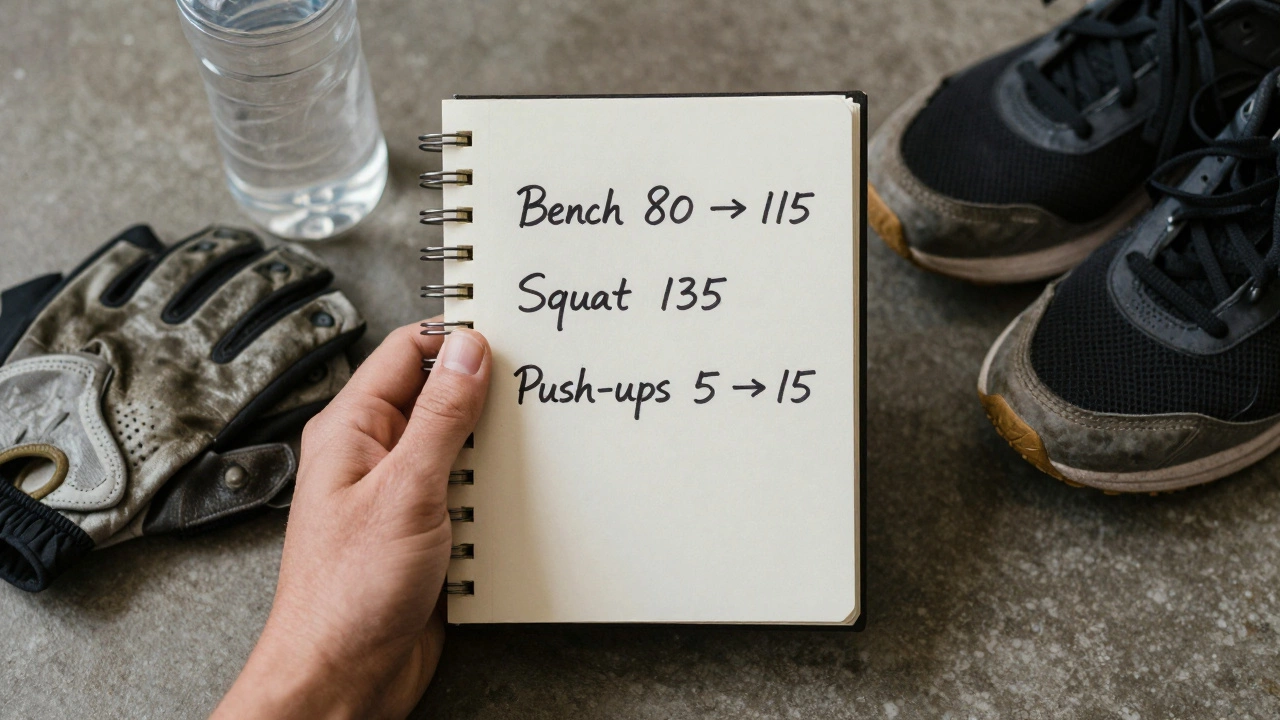 Bench 80 → 115
Squat 135
Push-ups 5 → 15